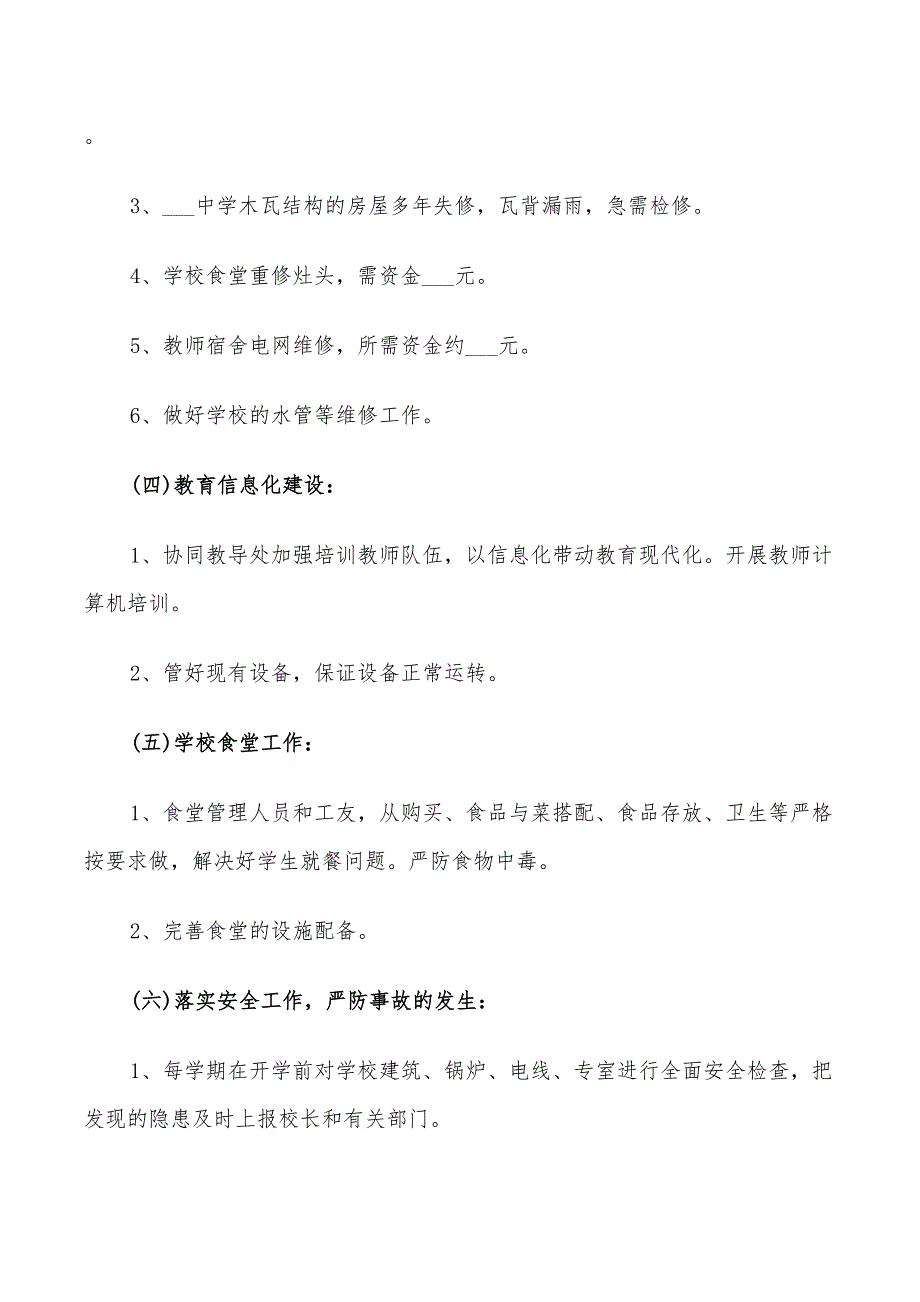 。
3、___中学木瓦结构的房屋多年失修，瓦背漏雨，急需检修。
4、学校食堂重修灶头，需资金___元。
5、教师宿舍电网维修，所需资金约___元。
6、做好学校的水管等维修工作。
(四)教育信息化建设：
1、协同教导处加强培训教师队伍，以信息化带动教育现代化。开展教师计
算机培训。
2、管好现有设备，保证设备正常运转。
(五)学校食堂工作：
1、食堂管理人员和工友，从购买、食品与菜搭配、食品存放、卫生等严格
按要求做，解决好学生就餐问题。严防食物中毒。
2、完善食堂的设施配备。
(六)落实安全工作，严防事故的发生：
1、每学期在开学前对学校建筑、锅炉、电线、专室进行全面安全检查，把
发现的隐患及时上报校长和有关部门。